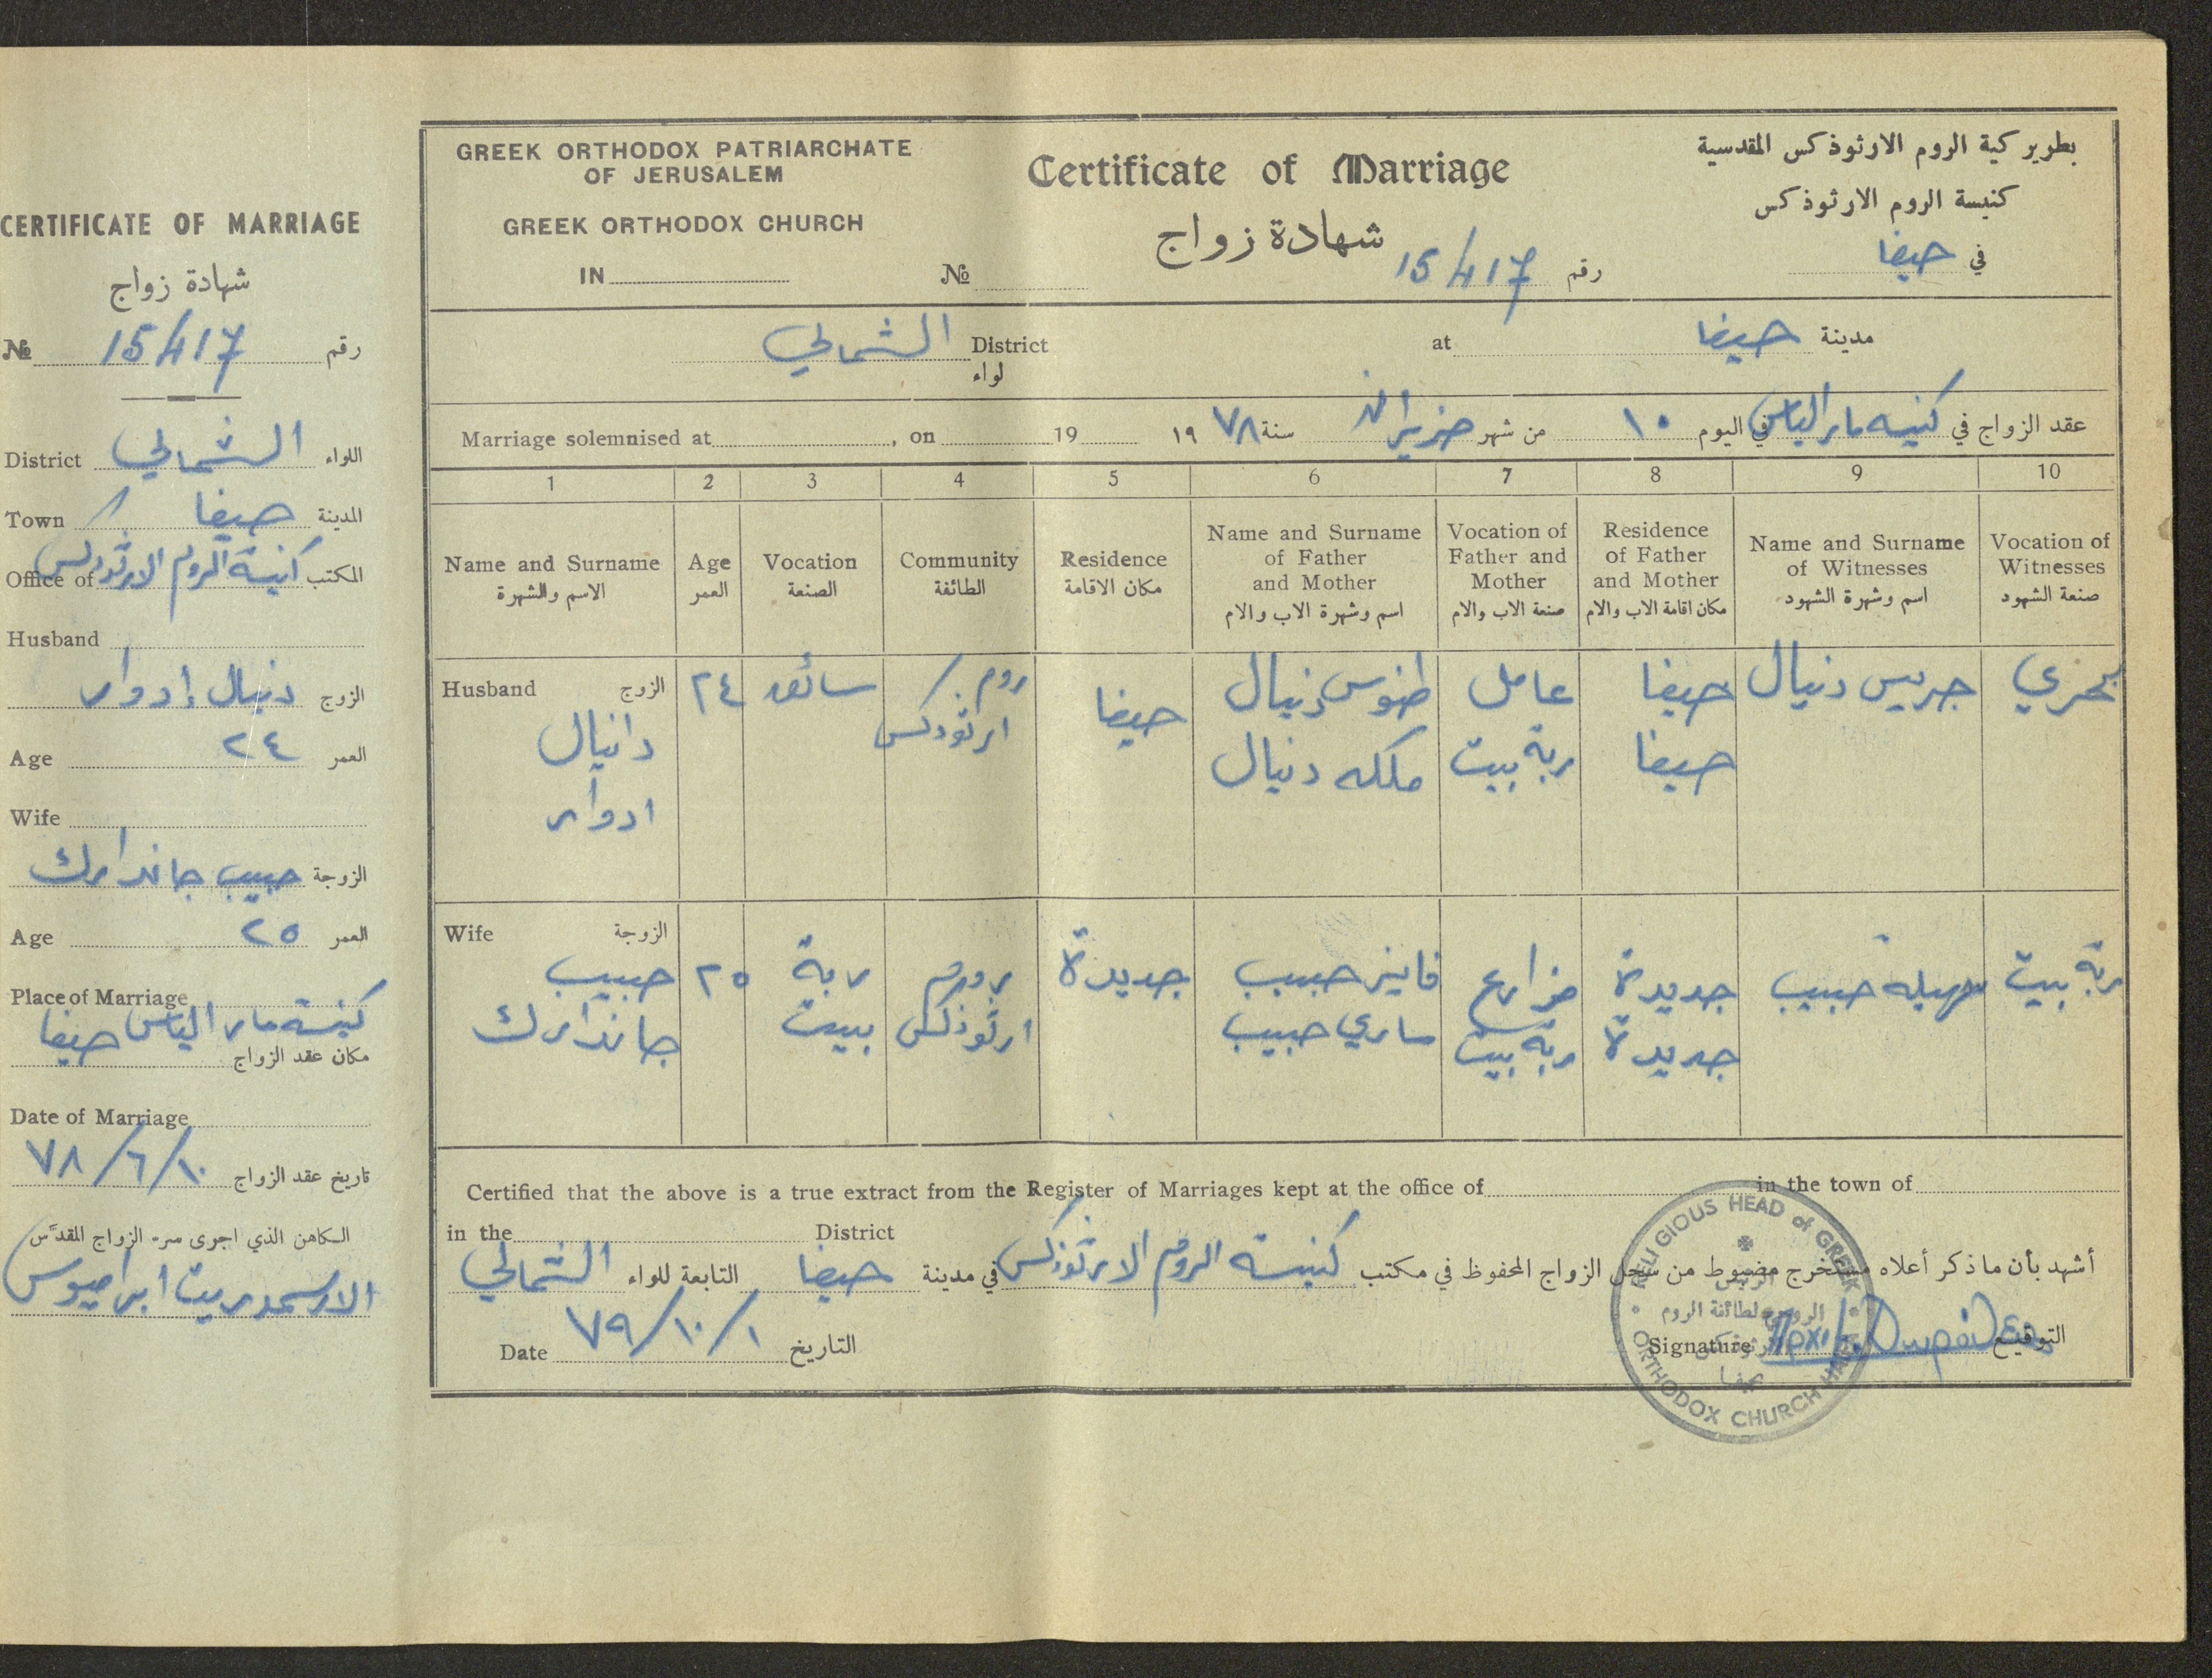 CERTIFICATE OF MARRIAGE
شهادة زواج
№ 15/417 رقم
District الشمالي اللواء
Town حيفا المدينة
Office of كنيسة الروم الارثوذكس المكتب
Husband
الزوج دنيال إدوار
Age ٢٤ العمر
Wife
الزوجة حبيب جاندارك
Age ٢٥ العمر
Place of Marriage
كنيسة مار الياس حيفا
مكان عقد الزواج
Date of Marriage
تاريخ عقد الزواج ١٠/٦/٧٨
الكاهن الذي اجرى سر الزواج المقدّس
GREEK ORTHODOX PATRIARCHATE
OF JERUSALEM
GREEK ORTHODOX CHURCH
IN
Certificate of Marriage
شهادة زواج
№ 15/417 رقم
بطريركية الروم الارثوذكس المقدسية
كنيسة الروم الارثوذكس
في حيفا
الشمالي District at حيفا مدينة
لواء
Marriage solemnised at , on 19
عقد الزواج في كنيسة مار الياس في اليوم ١٠ من شهر حزيران سنة ١٩٧٨
1 2 3 4 5 6 7 8 9 10
Name and Surname
الاسم والشهرة
Age
العمر
Vocation
الصنعة
Community
الطائفة
Residence
مكان الاقامة
Name and Surname
of Father
and Mother
اسم وشهرة الاب والام
Vocation of
Father and
Mother
صنعة الاب والام
Residence
of Father
and Mother
مكان اقامة الاب والام
Name and Surname
of Witnesses
اسم وشهرة الشهود
Vocation of
Witnesses
صنعة الشهود
Husband الزوج
دانيال
ادوار
٢٤
سائق
روم
ارثوذكس
حيفا
طنوس دنيال
ملكه دنيال
عامل
ربة بيت
حيفا
حيفا
جريس دنيال
Wife الزوجة
حبيب
جاندارك
٢٥
ربة
بيت
روم
ارثوذكس
جديدة
فايز حبيب
ماري حبيب
مزارع
ربة بيت
جديدة
جديدة
سهيله حبيب
ربة بيت
Certified that the above is a true extract from the Register of Marriages kept at the office of in the town of
in the District
أشهد بأن ما ذكر أعلاه مستخرج مضبوط من سجل الزواج المحفوظ في مكتب كنيسة الروم الارثوذكس في مدينة حيفا التابعة للواء الشمالي
Date ١/١٠/٧٩ التاريخ
Signature التوقيع
RELIGIOUS HEAD of GREEK
ORTHODOX CHURCH HAIFA
الرئيس
الروحي لطائفة الروم
الارثوذكس
بحيفا